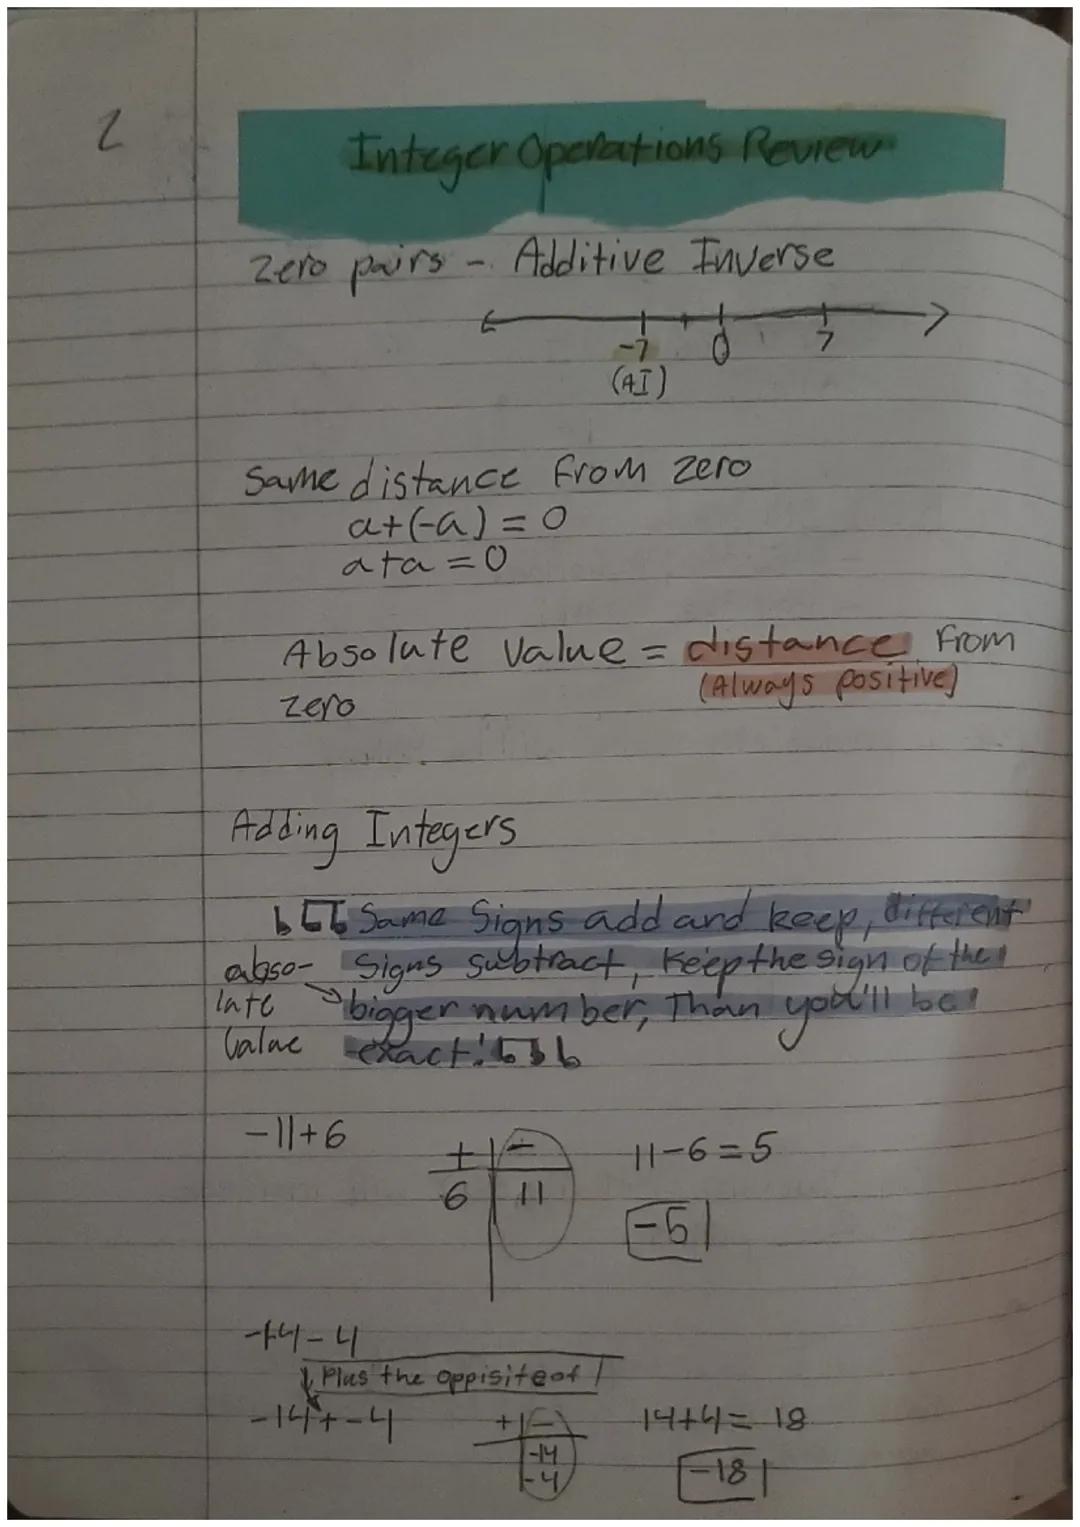 2
Integer Operations Review
Zero pairs - Additive Inverse
-7 0 7
(AI)
Same distance from zero
a+(-a) = 0
a+a = 0
Absolute value = distance from
(Always positive)
zero
Adding Integers
Same Signs add and keep, different
abso- Signs subtract, keep the sign of the
late bigger number, Than you'll be
Value exact!
-11+6
+ -
6 11
11-6=5
-5
-14-4
Plus the oppisite of
-14+-4
+ -
-14
-4
14+4= 18
-18